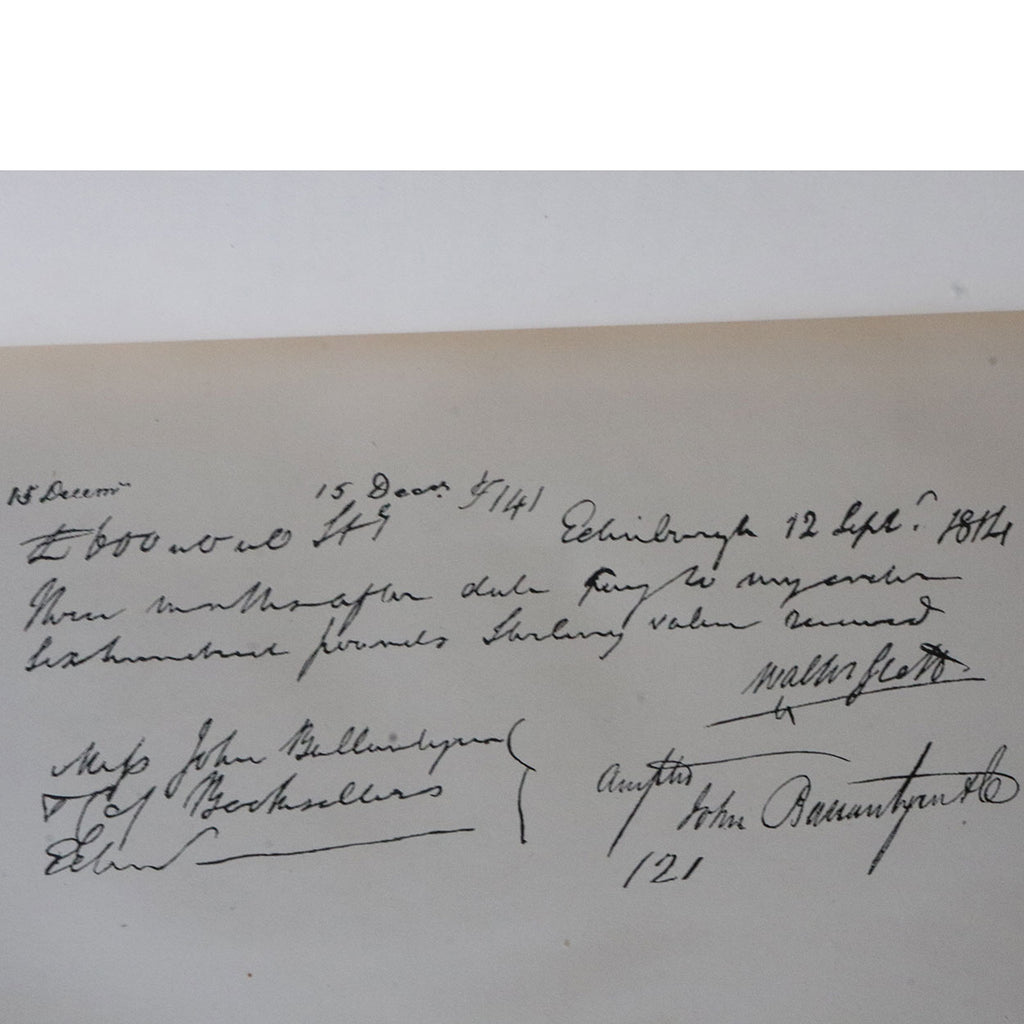 15 Decemr 15 Decr
£600 Stg Edinburgh 12 Septr 1814
Three months after date pay to my order
Six hundred pounds Sterling value received
Walter Scott
Mess John Ballantyne
& Co Booksellers
Edinr
Accepted
John Ballantyne & Co
121